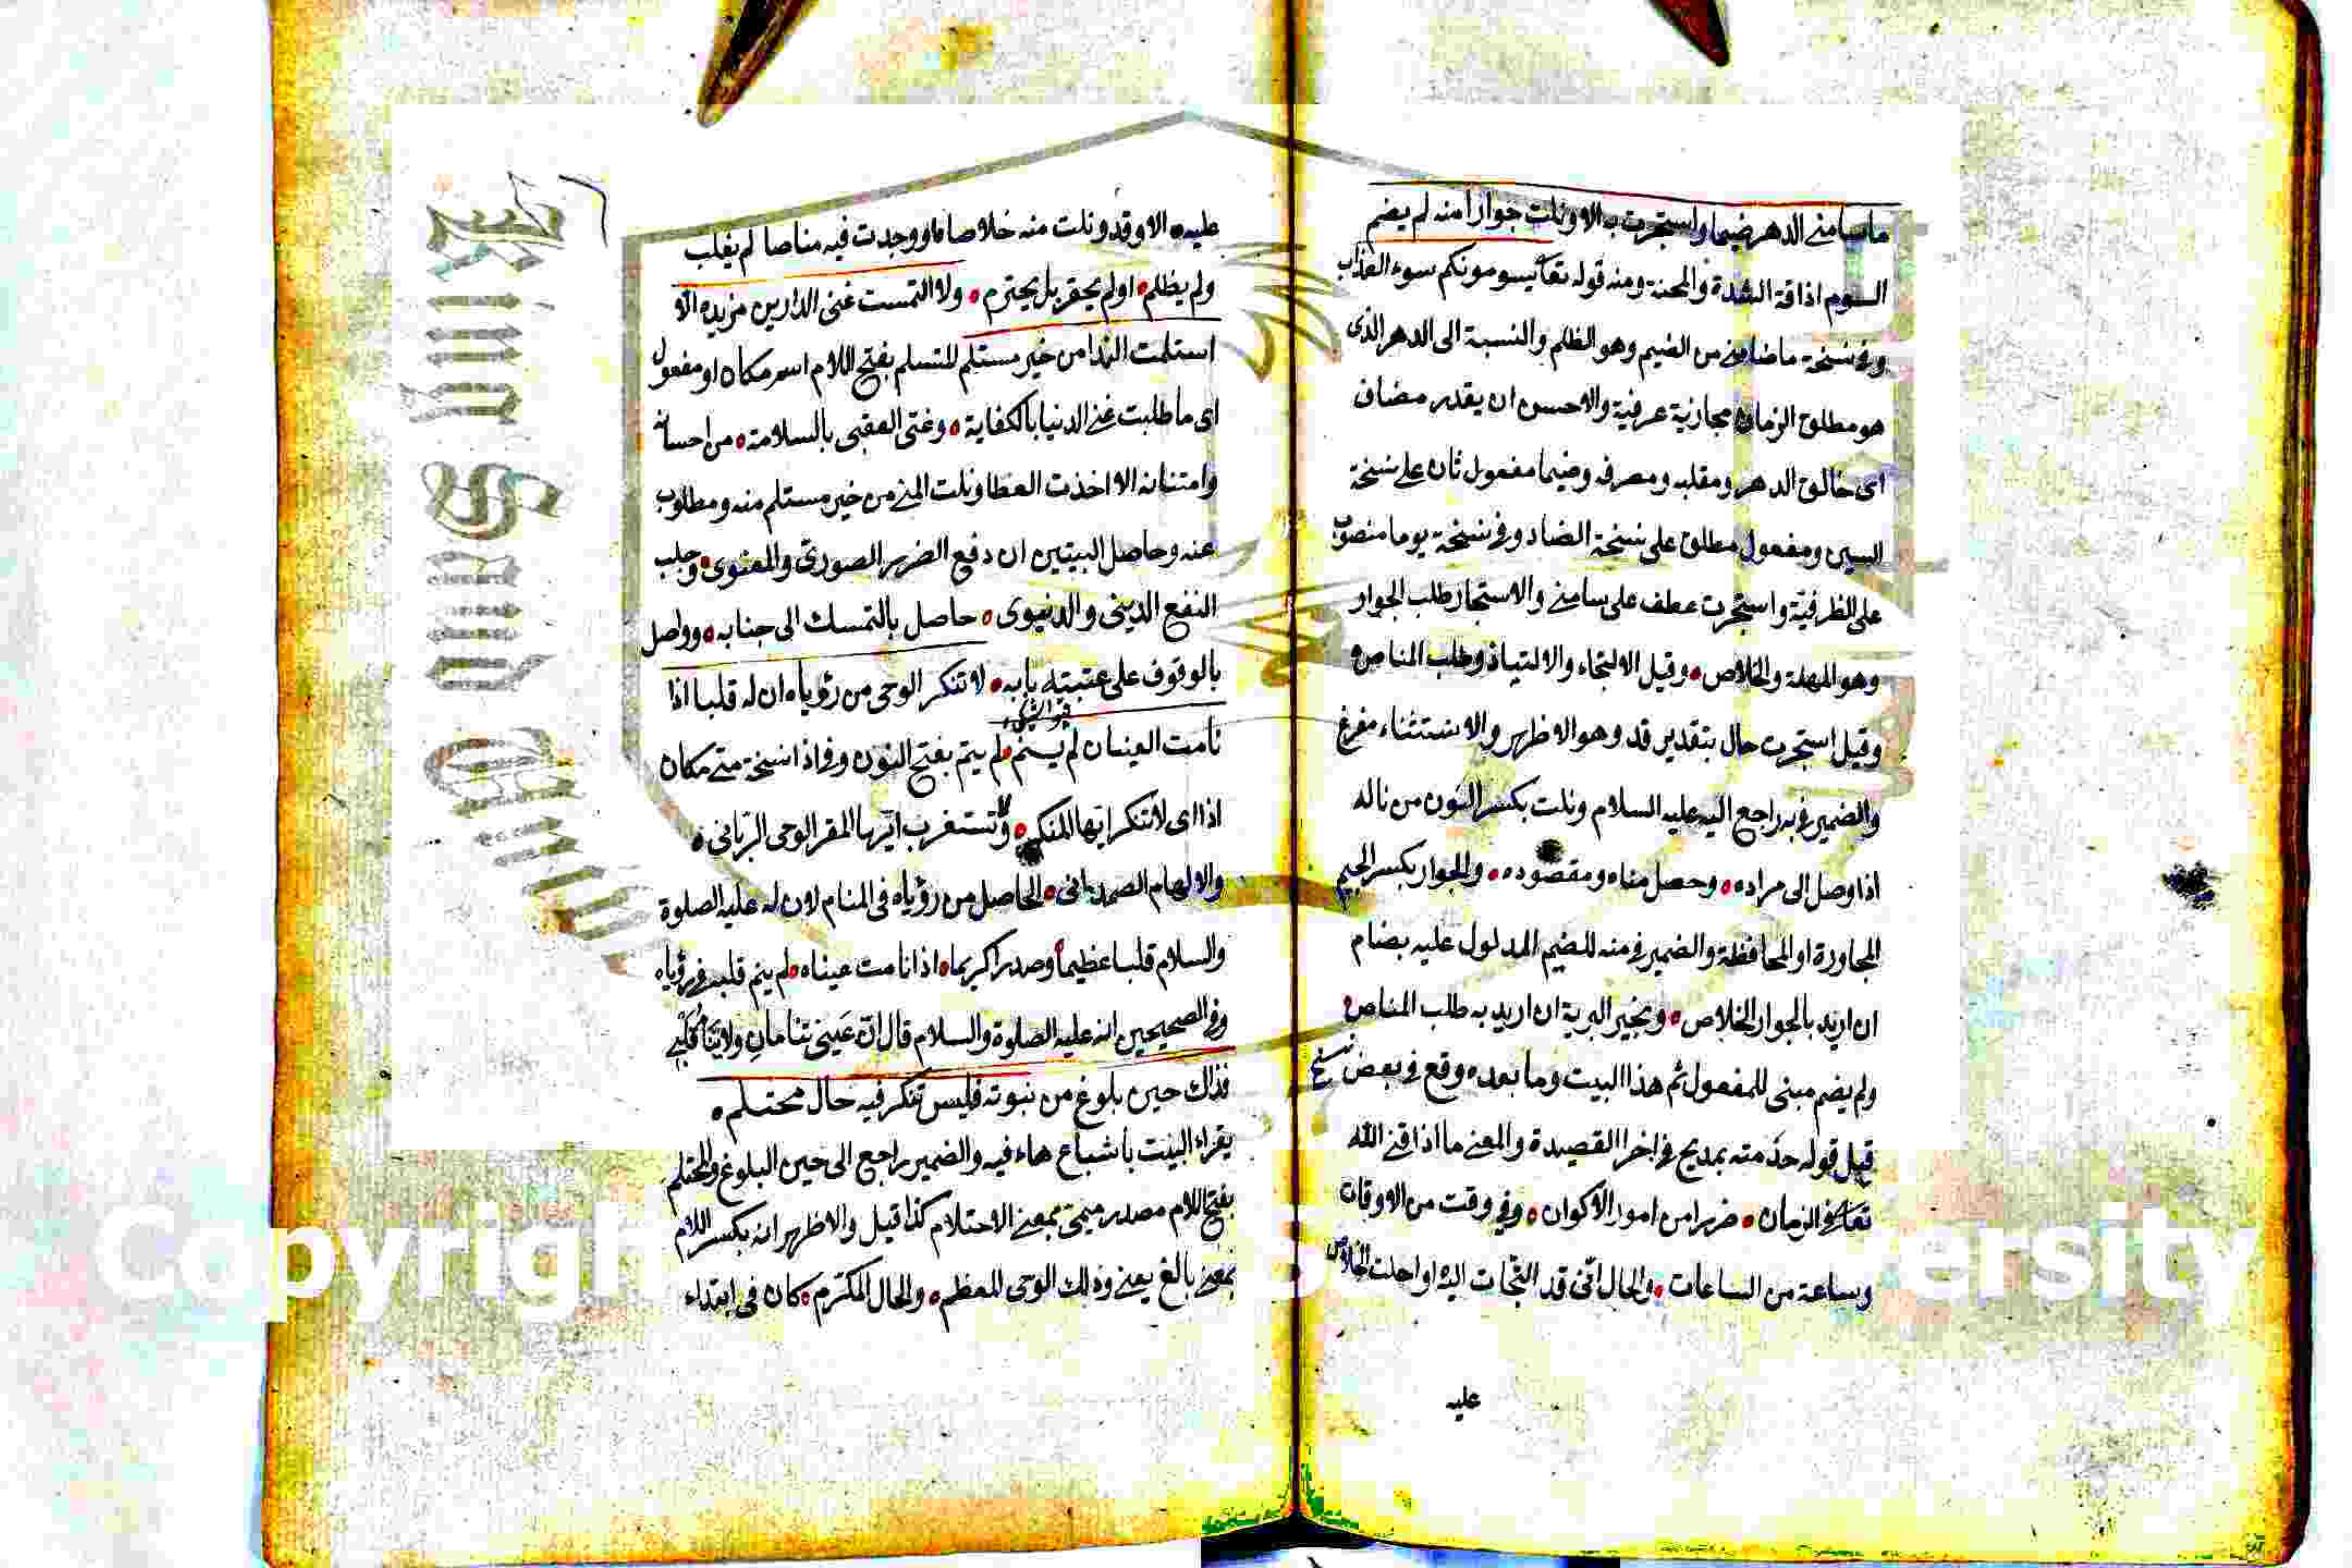 ما سامني الدهر ضيما واستجرت به الا ونلت جوارا منه لم يضم
السوم اذاقة الشدة والمحنة ومنه قوله تعا يسومونكم سوء العذاب
وفي نسخة ما ضامني من الضيم وهو الظلم والنسبة الى الدهر الذى
هو مطلق الزمان مجازية عرفية والاحسن ان يقدر مضاف
اى خالق الدهر ومقلبه ومصرفه وضيما مفعول ثان على نسخة
السين ومفعول مطلق على نسخة الضاد وفي نسخة يوما منصوب
على الظرفية واستجرت عطف على سامني والاستجار طلب الجوار
وهو المهلة والخلاص وقيل الالتجاء والالتياذ وطلب المناص
وقيل استجرت حال بتقدير قد وهو الاظهر والاستثناء مفرغ
والضمير في به راجع اليه عليه السلام ونلت بكسر النون من ناله
اذا وصل الى مراده وحصل مناه ومقصوده والجوار بكسر الجيم
المجاورة او المحافظة والضمير في منه للضيم المدلول عليه بضام
ان اريد بالجوار الخلاص وبخير البرية ان اريد به طلب المناص
ولم يضم مبنى للمفعول ثم هذا البيت وما بعده وقع في بعض نسخ
قبل قوله خدمته بمديح في اخر القصيدة والمعنى ما اذاقني الله
تعا في الزمان ضررا من امور الاكوان وفي وقت من الاوقات
وساعة من الساعات والحال انى قد التجات اليه او احلت الخلاص
عليه
عليه الا وقد ونلت منه خلاصا ووجدت فيه مناصا لم يغلب
ولم يظلم او لم يحقر بل يحترم ولا التمست غنى الدارين من يده الا
استلمت الندا من خير مستلم للتسلم بفتح اللام اسم مكان او مفعول
اى ما طلبت غنى الدنيا بالكفاية وغنى العقبى بالسلامة من احسانه
وامتنانه الا اخذت العطا ونلت المنى من خير مستلم منه ومطلوب
عنه وحاصل البيتين ان دفع الضرر الصورى والمعنوى وجلب
النفع الدينى والدنيوى حاصل بالتمسك الى جنابه وواصل
بالوقوف على عتبة بابه لا تنكر الوحى من رؤياه ان له قلبا اذا
نامت العينان لم ينم لم يتم بفتح النون وفي اذا نسخة متى مكان
اذا اى لا تنكر ايها المنكر ولا تستغرب ايها المقر الوحى الربانى
والالهام الصمدانى الحاصل من رؤياه فى المنام لان له عليه الصلوة
والسلام قلبا عظيما وصدرا كريما اذا نامت عيناه لم ينم قلبه في رؤياه
وفي الصحيحين انه عليه الصلوة والسلام قال ان عينى تنامان ولا ينام قلبي
فذاك حين بلوغ من نبوته فليس تنكر فيه حال محتلم
يقراء البيت باشباع هاء فيه والضمير راجع الى حين البلوغ والمحتلم
بفتح اللام مصدر ميمى بمعنى الاحتلام كذا قيل والاظهر انه بكسر اللام
بمعنى بالغ يعنى وذلك الوحى المعظم والحال المكرم كان فى ابتداء